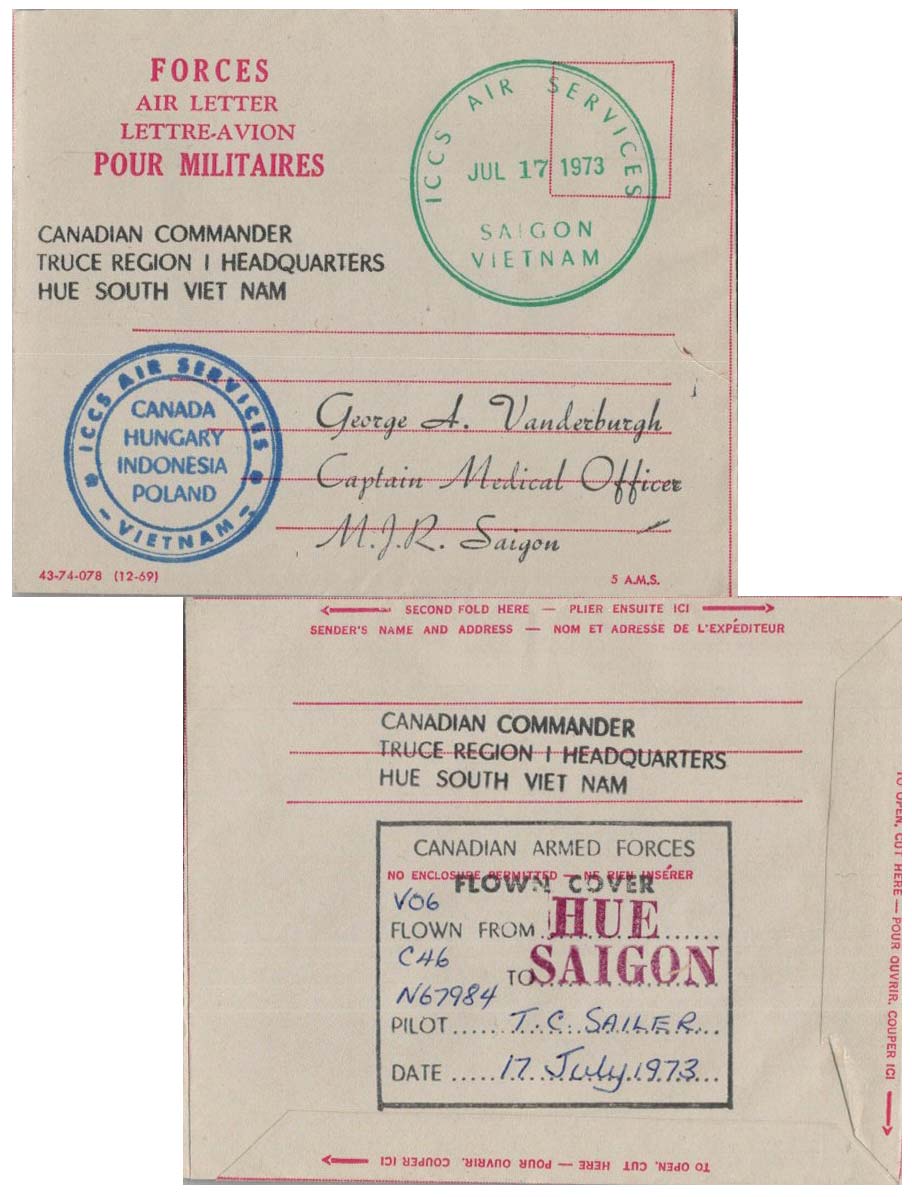 FORCES
AIR LETTER
LETTRE-AVION
POUR MILITAIRES
ICCS AIR SERVICES
JUL 17 1973
SAIGON
VIETNAM
CANADIAN COMMANDER
TRUCE REGION I HEADQUARTERS
HUE SOUTH VIET NAM
ICCS AIR SERVICES
CANADA
HUNGARY
INDONESIA
POLAND
- VIETNAM -
George A. Vanderburgh
Captain Medical Officer
M.J.R. Saigon
43-74-078 (12-69)
5 A.M.S.
SECOND FOLD HERE — PLIER ENSUITE ICI
SENDER'S NAME AND ADDRESS — NOM ET ADRESSE DE L'EXPÉDITEUR
CANADIAN COMMANDER
TRUCE REGION I HEADQUARTERS
HUE SOUTH VIET NAM
CANADIAN ARMED FORCES
NO ENCLOSURE PERMITTED — NE RIEN INSÉRER
FLOWN COVER
V06
FLOWN FROM HUE
C46
TO SAIGON
N67984
PILOT T.C. SAILER
DATE 17 July 1973
TO OPEN, CUT HERE — POUR OUVRIR, COUPER ICI
TO OPEN, CUT HERE — POUR OUVRIR, COUPER ICI